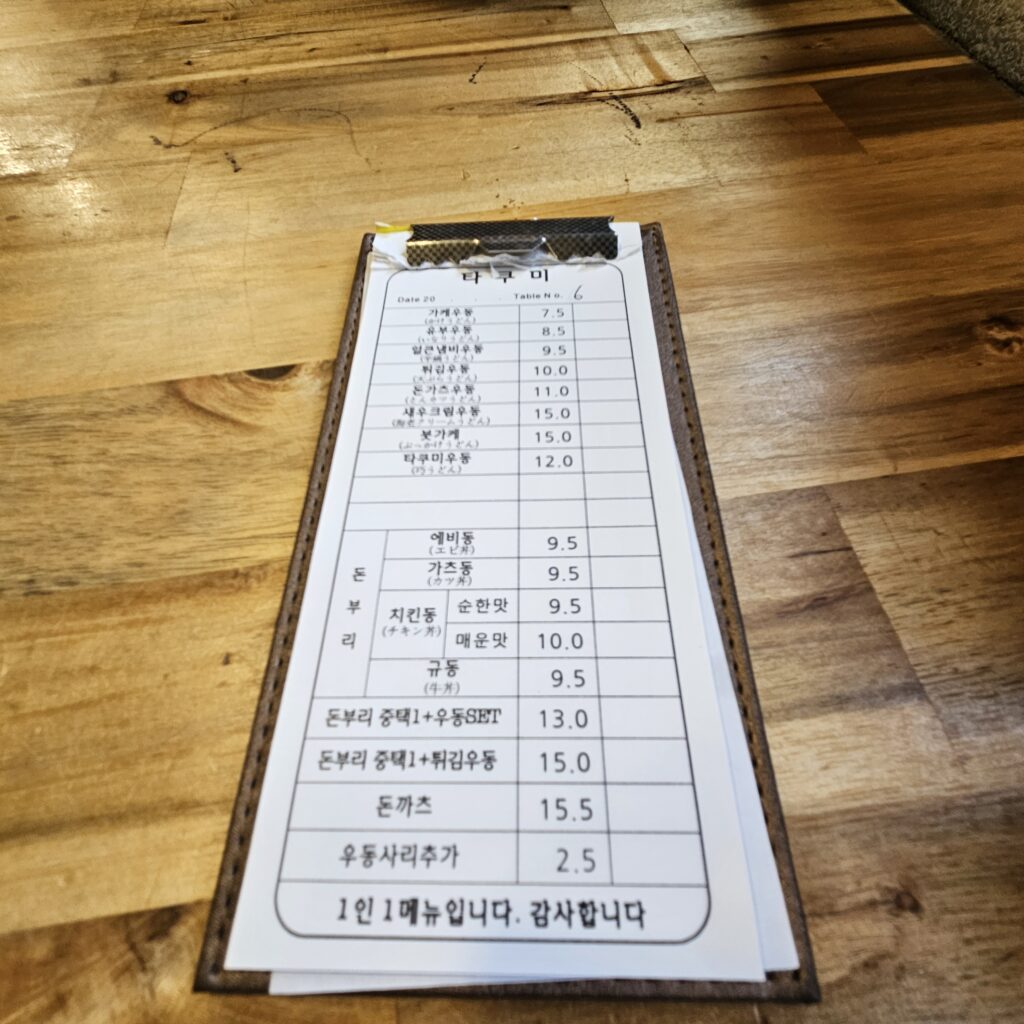 타쿠미
Date 20 . . . Table No. 6
가케우동 7.5
(かけうどん)
유부우동 8.5
(いなりうどん)
얼큰냄비우동 9.5
(辛鍋うどん)
튀김우동 10.0
(天ぷらうどん)
돈가츠우동 11.0
(とんカツうどん)
새우크림우동 15.0
(海老クリームうどん)
붓가케 15.0
(ぶっかけうどん)
타쿠미우동 12.0
(巧うどん)
돈부리
에비동 9.5
(エビ丼)
가츠동 9.5
(カツ丼)
치킨동 순한맛 9.5
(チキン丼) 매운맛 10.0
규동 9.5
(牛丼)
돈부리 중택1+우동SET 13.0
돈부리 중택1+튀김우동 15.0
돈까츠 15.5
우동사리추가 2.5
1인 1메뉴입니다. 감사합니다